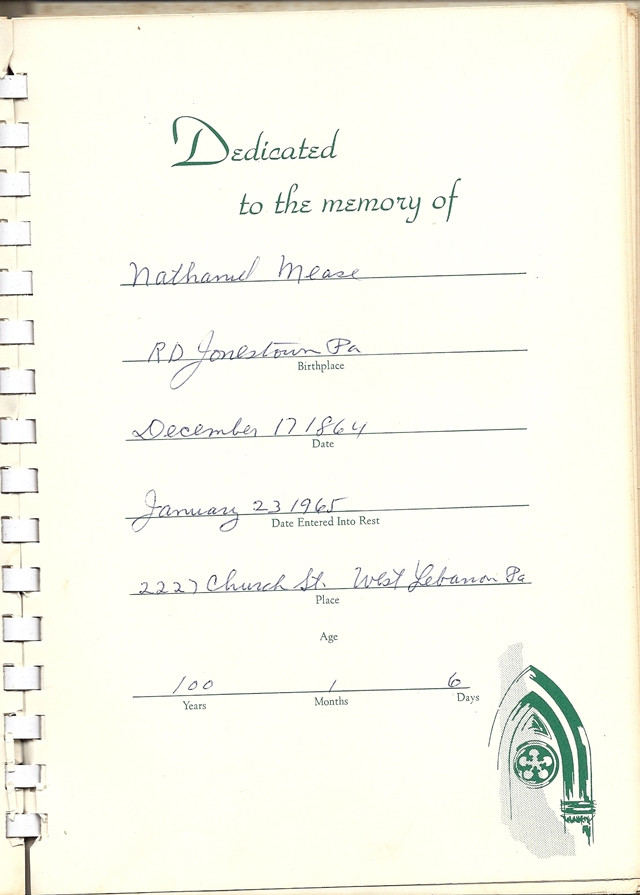 Dedicated
to the memory of
Nathaniel Mease
RD Jonestown Pa
Birthplace
December 17 1864
Date
January 23 1965
Date Entered Into Rest
2227 Church St. West Lebanon Pa
Place
Age
100 1 6
Years Months Days